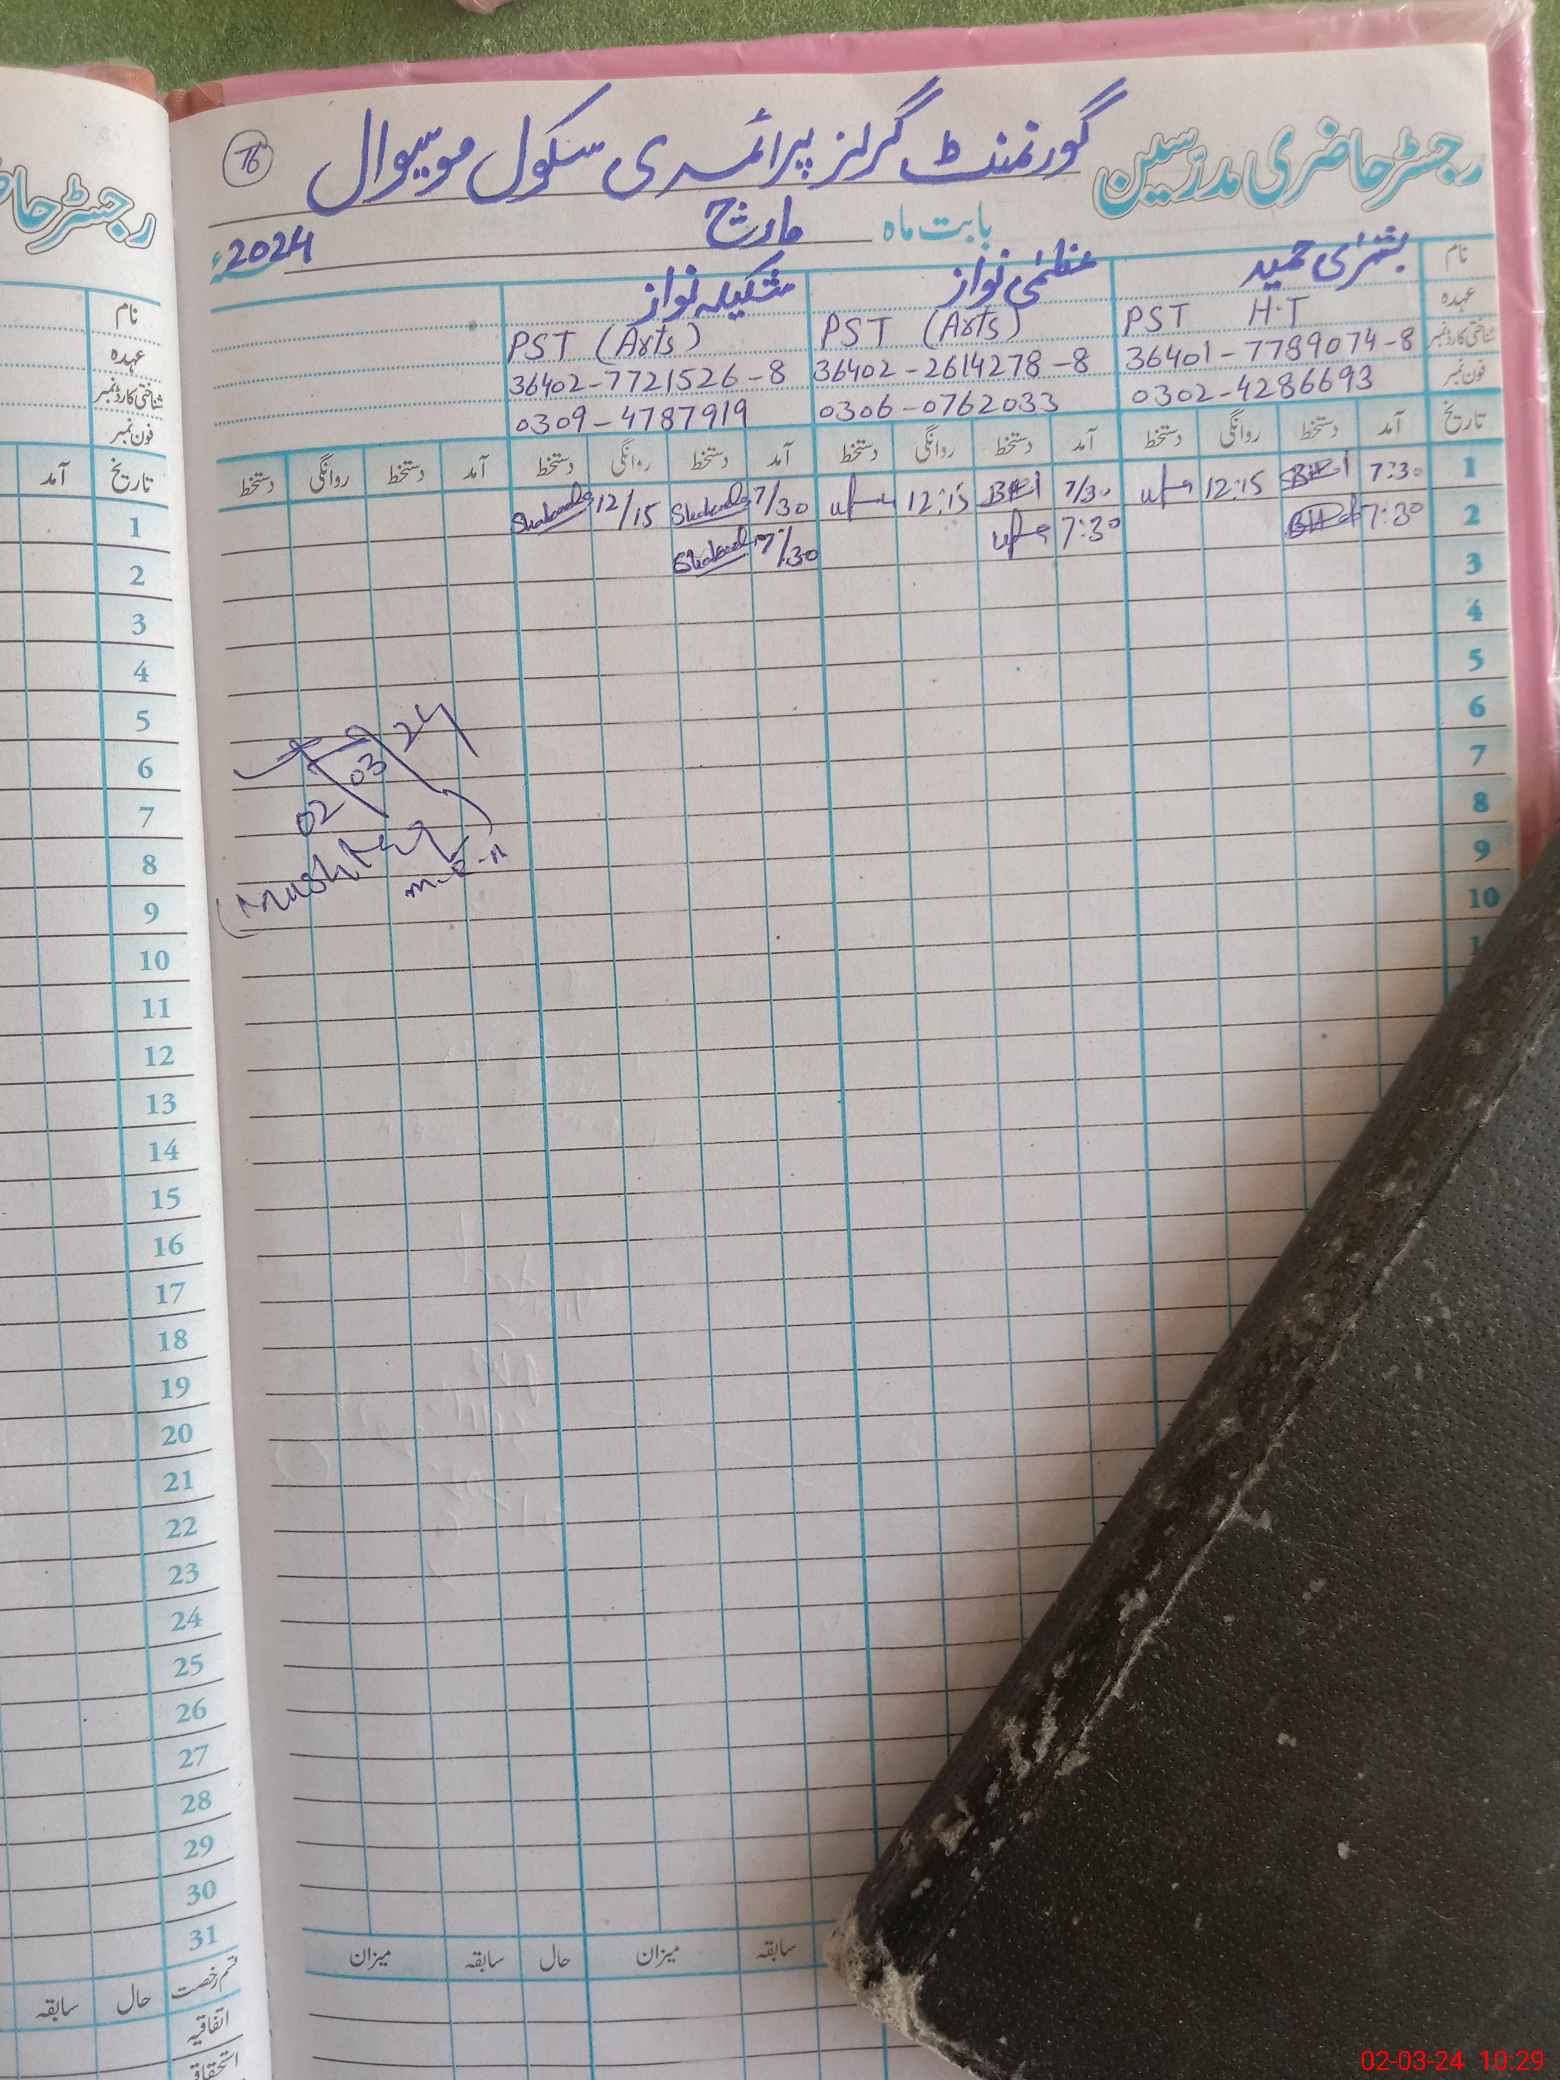 رجسٹر حاضری مدرسین گورنمنٹ گرلز پرائمری سکول موسیوال 76
بابت ماہ مارچ 2024ء
نام بشریٰ حمید عظمیٰ نواز شکیلہ نواز
عہدہ PST H.T PST (Arts) PST (Arts)
شناختی کارڈ نمبر 36401-7789074-8 36402-2614278-8 36402-7721526-8
فون نمبر 0302-4286693 0306-0762033 0309-4787919
تاریخ آمد دستخط روانگی دستخط آمد دستخط روانگی دستخط آمد دستخط روانگی دستخط آمد دستخط روانگی دستخط
1 7:30 12:15 7/30 12:15 7/30 12/15
2 7:30 7:30 7/30
3
4
5
6
7
8
9
10
02 03 24
میزان سابقہ حال میزان سابقہ
رجسٹر حا
نام
عہدہ
شناختی کارڈ نمبر
فون نمبر
تاریخ آمد
1
2
3
4
5
6
7
8
9
10
11
12
13
14
15
16
17
18
19
20
21
22
23
24
25
26
27
28
29
30
31
قسم رخصت حال سابقہ
اتفاقیہ
02-03-24 10:29